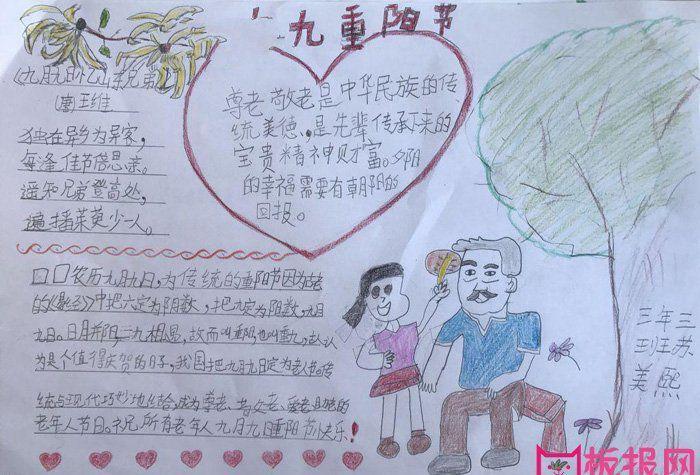 九重阳节
《九月九日忆山东兄弟》
唐王维
独在异乡为异客,
每逢佳节倍思亲。
遥知兄弟登高处,
遍插茱萸少一人。
尊老敬老是中华民族的传
统美德,是先辈传承下来的
宝贵精神财富。夕阳
的幸福需要有朝阳的
回报。
农历九月九日,为传统的重阳节因为古老
的《易经》中把六定为阴数,把九定为阳数,九月
九日。日月并阳,二九相遇,故而叫重阳也叫重九,古人认
为是个值得庆贺的日子,我国把九月九日定为老人节。传
统与现代巧妙地结合,成为尊老、敬老、爱老、助老的
老年人节日。祝所有老年人九月九重阳节快乐!
三年三
班王苏
美熙
板报网